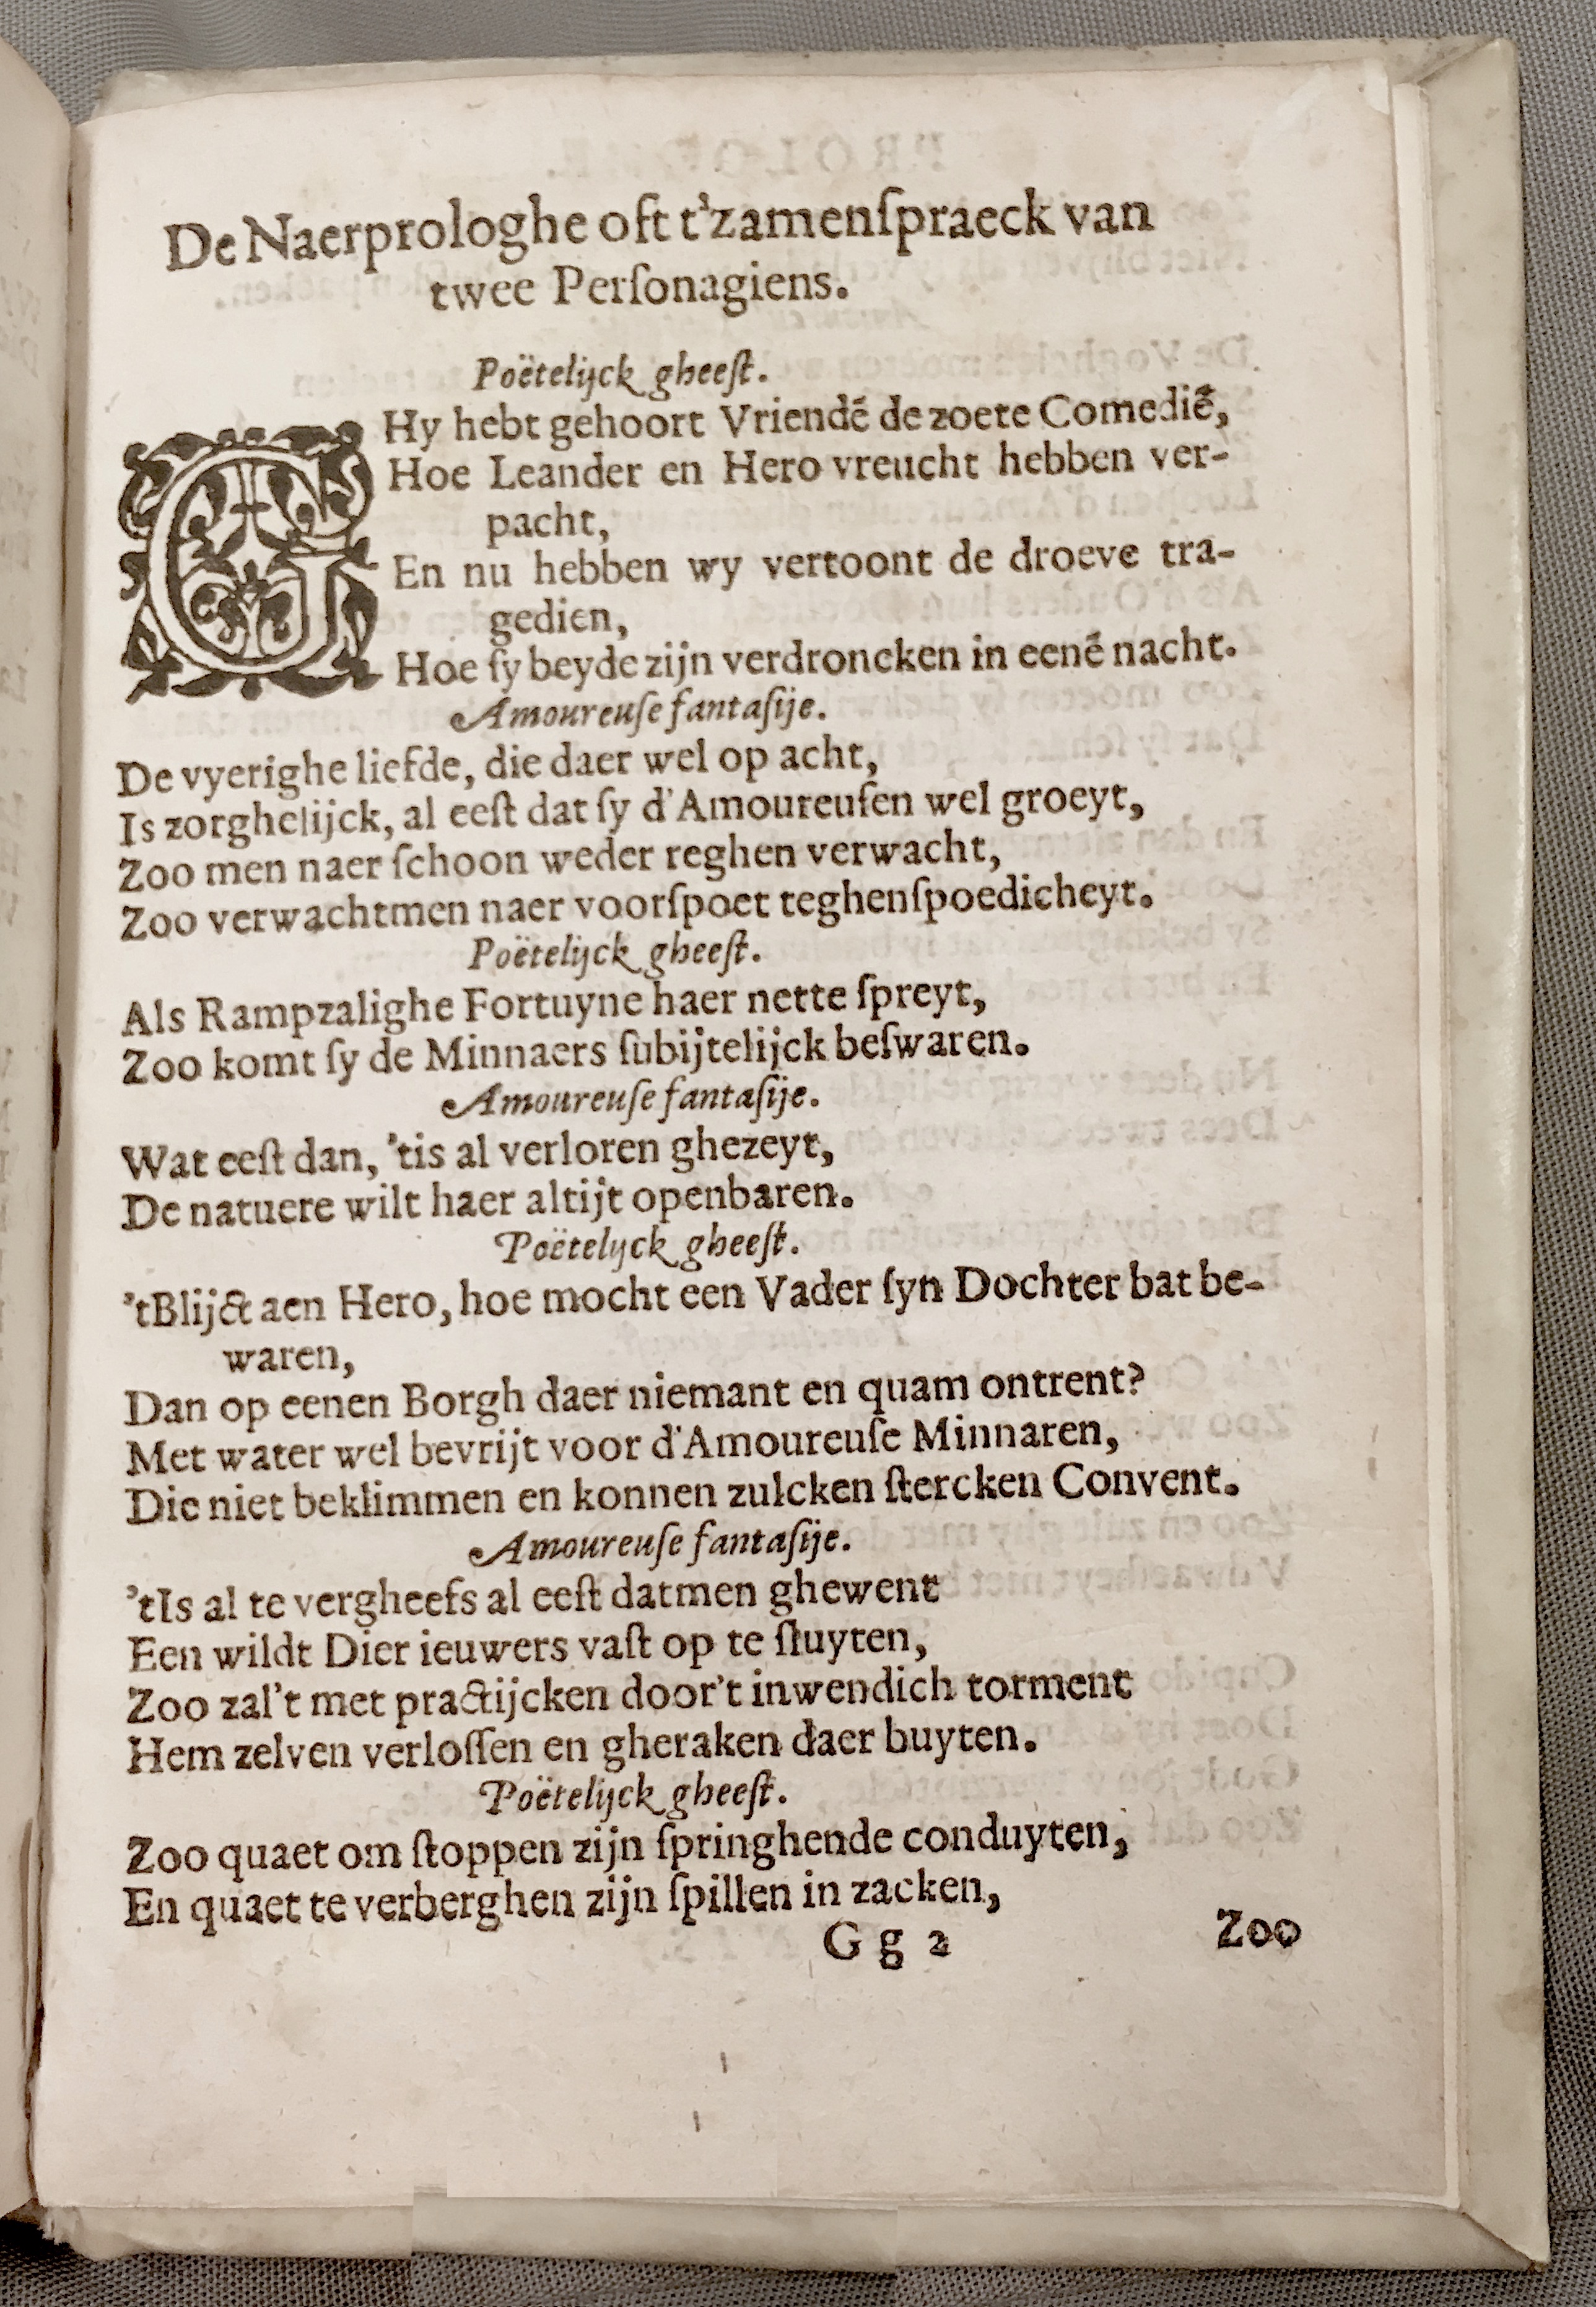 De Naerprologhe oft t'zamenſpraeck van
twee Perſonagiens.
Poëtelijck gheeſt.
GHy hebt gehoort Vriendẽ de zoete Comediẽ,
Hoe Leander en Hero vreucht hebben ver-
pacht,
En nu hebben wy vertoont de droeve tra-
gedien,
Hoe ſy beyde zijn verdroncken in eenẽ nacht.
Amoureuſe fantaſije.
De vyerighe liefde, die daer wel op acht,
Is zorghelijck, al eeſt dat ſy d'Amoureuſen wel groeyt,
Zoo men naer ſchoon weder reghen verwacht,
Zoo verwachtmen naer voorſpoet teghenſpoedicheyt.
Poëtelijck gheeſt.
Als Rampzalighe Fortuyne haer nette ſpreyt,
Zoo komt ſy de Minnaers ſubijtelijck beſwaren.
Amoureuſe fantaſije.
Wat eeſt dan, 'tis al verloren ghezeyt,
De natuere wilt haer altijt openbaren.
Poëtelijck gheeſt.
'tBlijct aen Hero, hoe mocht een Vader ſyn Dochter bat be-
waren,
Dan op eenen Borgh daer niemant en quam ontrent?
Met water wel bevrijt voor d'Amoureuſe Minnaren,
Die niet beklimmen en konnen zulcken ſtercken Convent.
Amoureuſe fantaſije.
'tIs al te vergheefs al eeſt datmen ghewent
Een wildt Dier ieuwers vaſt op te ſluyten,
Zoo zal't met practijcken door't inwendich torment
Hem zelven verloſſen en gheraken daer buyten.
Poëtelijck gheeſt.
Zoo quaet om ſtoppen zijn ſpringhende conduyten,
En quaet te verberghen zijn ſpillen in zacken,
G g 2
Zoo